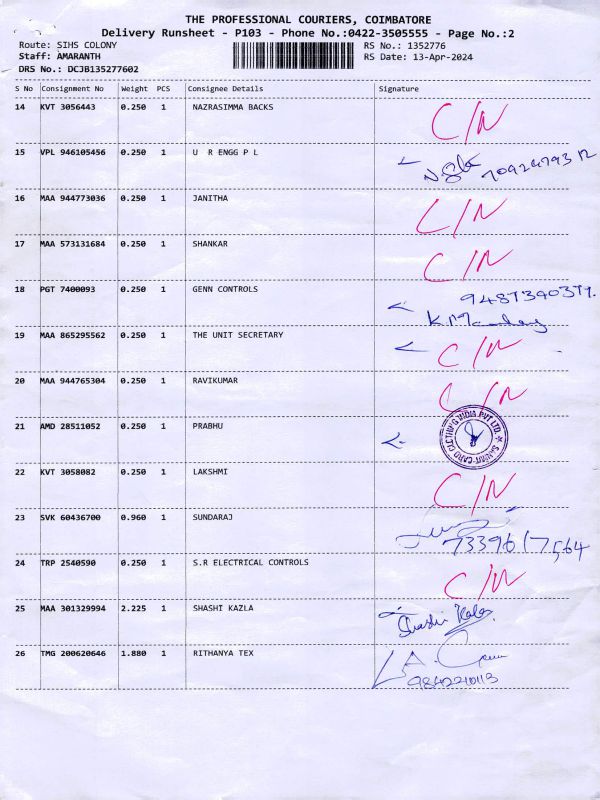 THE PROFESSIONAL COURIERS, COIMBATORE
Delivery Runsheet - P103 - Phone No.:0422-3505555 - Page No.:2
Route: SIHS COLONY RS No.: 1352776
Staff: AMARANTH RS Date: 13-Apr-2024
DRS No.: DCJB135277602
S No Consignment No Weight PCS Consignee Details Signature
14 KVT 3056443 0.250 1 NAZRASIMMA BACKS C/N
15 VPL 946105456 0.250 1 U R ENGG P L
16 MAA 944773036 0.250 1 JANITHA C/N
17 MAA 573131684 0.250 1 SHANKAR C/N
18 PGT 7400093 0.250 1 GENN CONTROLS
19 MAA 865295562 0.250 1 THE UNIT SECRETARY C/N
20 MAA 944765304 0.250 1 RAVIKUMAR C/N
21 AMD 28511052 0.250 1 PRABHU
22 KVT 3058082 0.250 1 LAKSHMI C/N
23 SVK 60436700 0.960 1 SUNDARAJ 7339617564
24 TRP 2540590 0.250 1 S.R ELECTRICAL CONTROLS C/N
25 MAA 301329994 2.225 1 SHASHI KAZLA Shashi
26 TMG 200620646 1.880 1 RITHANYA TEX
9842210113